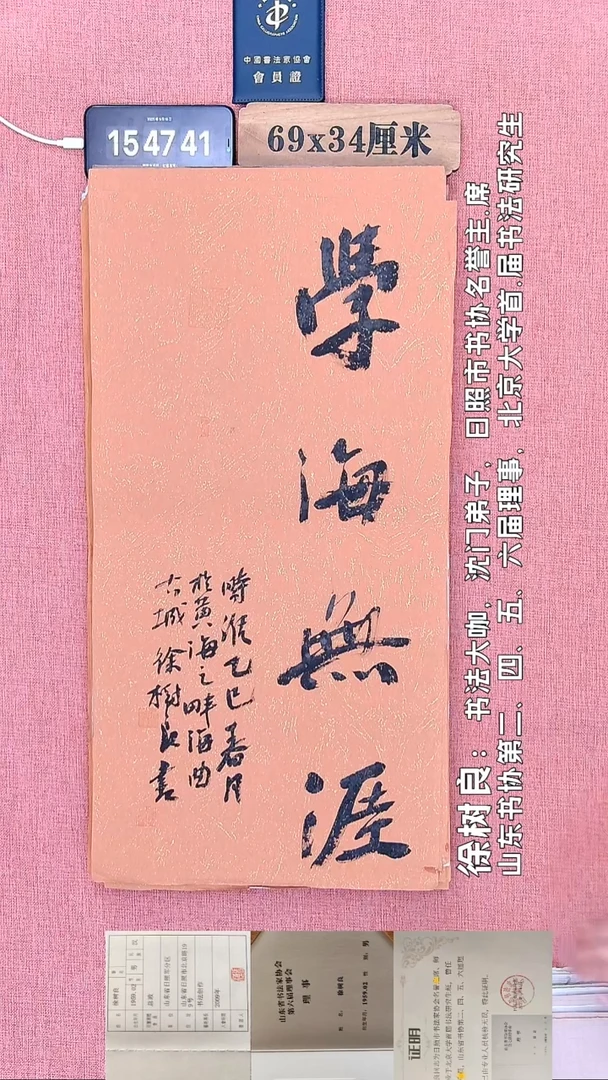 中國書法家協會
會員證
15 47 41
69x34厘米
學海無涯
時維乙巳春月
於黃海之畔海曲
古城徐樹良書
徐树良：书法大咖，沈门弟子，日照市书协名誉主.席
山东书协第二、四、五、六届理事，北京大学首.届书法研究生
山东省书法家协会
第六届理事会
理事
徐树良
证明